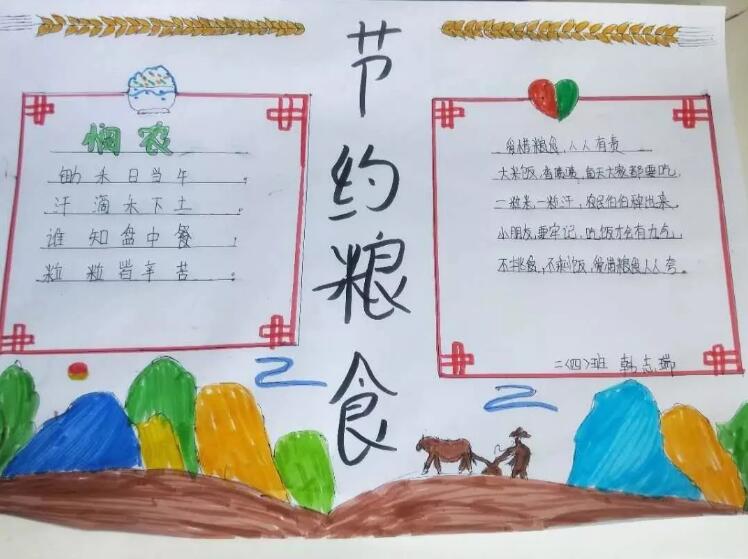 节约粮食
悯农
锄禾日当午。
汗滴禾下土。
谁知盘中餐,
粒粒皆辛苦。
爱惜粮食,人人有责
大米饭,香喷喷,每天大家都要吃,
一粒米,一粒汗,农民伯伯种出来,
小朋友,要牢记,吃饭才会有力气,
不挑食,不剩饭,爱惜粮食人人夸。
二(四)班 韩志瑞